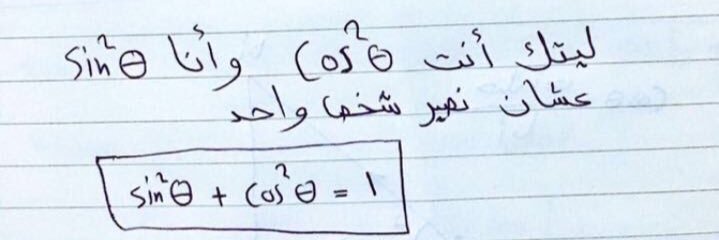 ليتك أنت cos²θ وأنا sin²θ
عشان نصير شخص واحد
sin²θ + cos²θ = 1